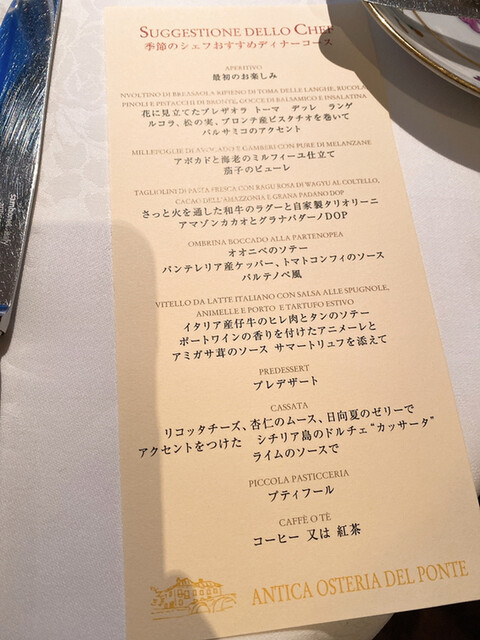 SUGGESTIONE DELLO CHEF
季節のシェフおすすめディナーコース
APERITIVO
最初のお楽しみ
INVOLTINO DI BREASOLA RIPIENO DI TOMA DELLE LANGHE, RUCOLA,
PINOLI E PISTACCHI DI BRONTE, GOCCE DI BALSAMICO E INSALATINA
花に見立てたブレザオラ トーマ デッレ ランゲ
ルコラ、松の実、ブロンテ産ピスタチオを巻いて
バルサミコのアクセント
MILLEFOGLIE DI AVOCADO E GAMBERI CON PURE DI MELANZANE
アボカドと海老のミルフィーユ仕立て
茄子のピューレ
TAGLIOLINI DI PASTA FRESCA CON RAGU ROSA DI WAGYU AL COLTELLO,
CACAO DELL'AMAZZONIA E GRANA PADANO DOP
さっと火を通した和牛のラグーと自家製タリオリーニ
アマゾンカカオとグラナパダーノDOP
OMBRINA BOCCADO ALLA PARTENOPEA
オオニベのソテー
パンテレリア産ケッパー、トマトコンフィのソース
パルテノペ風
VITELLO DA LATTE ITALIANO CON SALSA ALLE SPUGNOLE,
ANIMELLE E PORTO E TARTUFO ESTIVO
イタリア産仔牛のヒレ肉とタンのソテー
ポートワインの香りを付けたアニメーレと
アミガサ茸のソース サマートリュフを添えて
PREDESSERT
プレデザート
CASSATA
リコッタチーズ、杏仁のムース、日向夏のゼリーで
アクセントをつけた シチリア島のドルチェ“カッサータ”
ライムのソースで
PICCOLA PASTICCERIA
プティフール
CAFFÈ O TÈ
コーヒー 又は 紅茶
ANTICA OSTERIA DEL PONTE